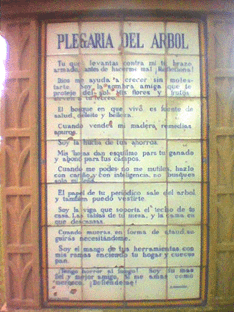 PLEGARIA DEL ARBOL
Tu que levantas contra mi tu brazo
armado, antes de hacerme mal ¡Reflexiona!
Dios me ayuda a crecer sin moles-
tarte. Soy la sombra amiga que te
protejo del sol. Mis flores y frutos
El bosque en que vivo es fuente de
salud, deleite y belleza.
Cuando vendes mi madera, remedias
apuros.
Soy la hucha de tus ahorros.
Mis hojas dan esquilmo para tu ganado
y abono para tus campos.
Cuando me podes no me mutiles, hazlo
con cariño y con inteligencia, no
El papel de tu periodico sale del arbol
y tambien puedo vestirte.
Soy la viga que soporta el techo de tu
casa. Las tablas de tu mesa, y la cama en
que descansas.
Cuando mueras en forma de ataud, se-
guiras necesitandome.
Soy el mango de tus herramientas con
mis ramas enciendo tu hogar y cueces tu
pan.
¡Tengo horror al fuego! Soy tu mas
fiel y mejor amigo. Si me amas como
¡Defiendeme!